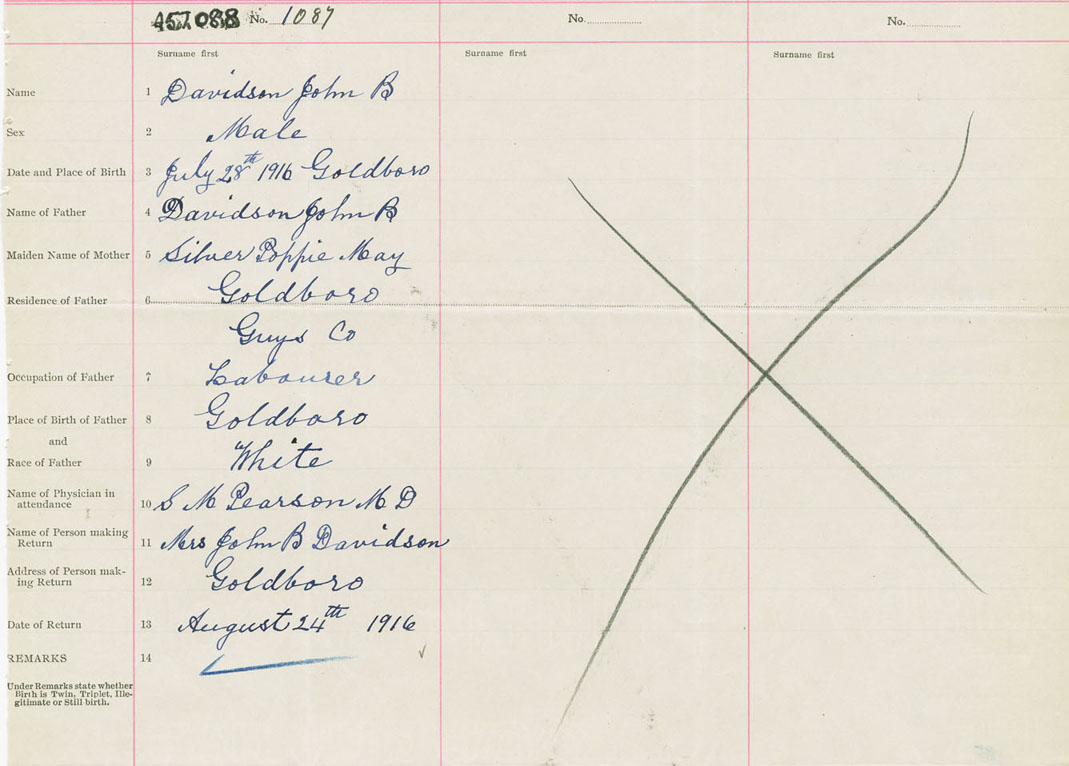 457088 No. 1087 No. No.
Surname first Surname first Surname first
Name 1 Davidson John B
Sex 2 Male
Date and Place of Birth 3 July 28th 1916 Goldboro
Name of Father 4 Davidson John B
Maiden Name of Mother 5 Silver Poppie May
Residence of Father 6 Goldboro
Guys Co
Occupation of Father 7 Labourer
Place of Birth of Father 8 Goldboro
and
Race of Father 9 White
Name of Physician in
attendance 10 S M Pearson M D
Name of Person making
Return 11 Mrs John B Davidson
Address of Person mak-
ing Return 12 Goldboro
Date of Return 13 August 24th 1916
REMARKS 14
Under Remarks state whether
Birth is Twin, Triplet, Ille-
gitimate or Still-birth.